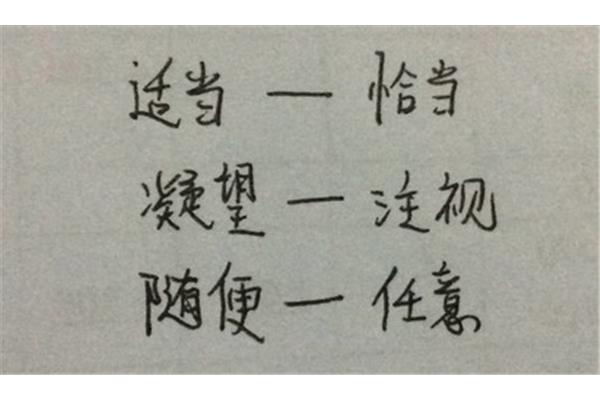 适当 — 恰当
凝望 — 注视
随便 — 任意